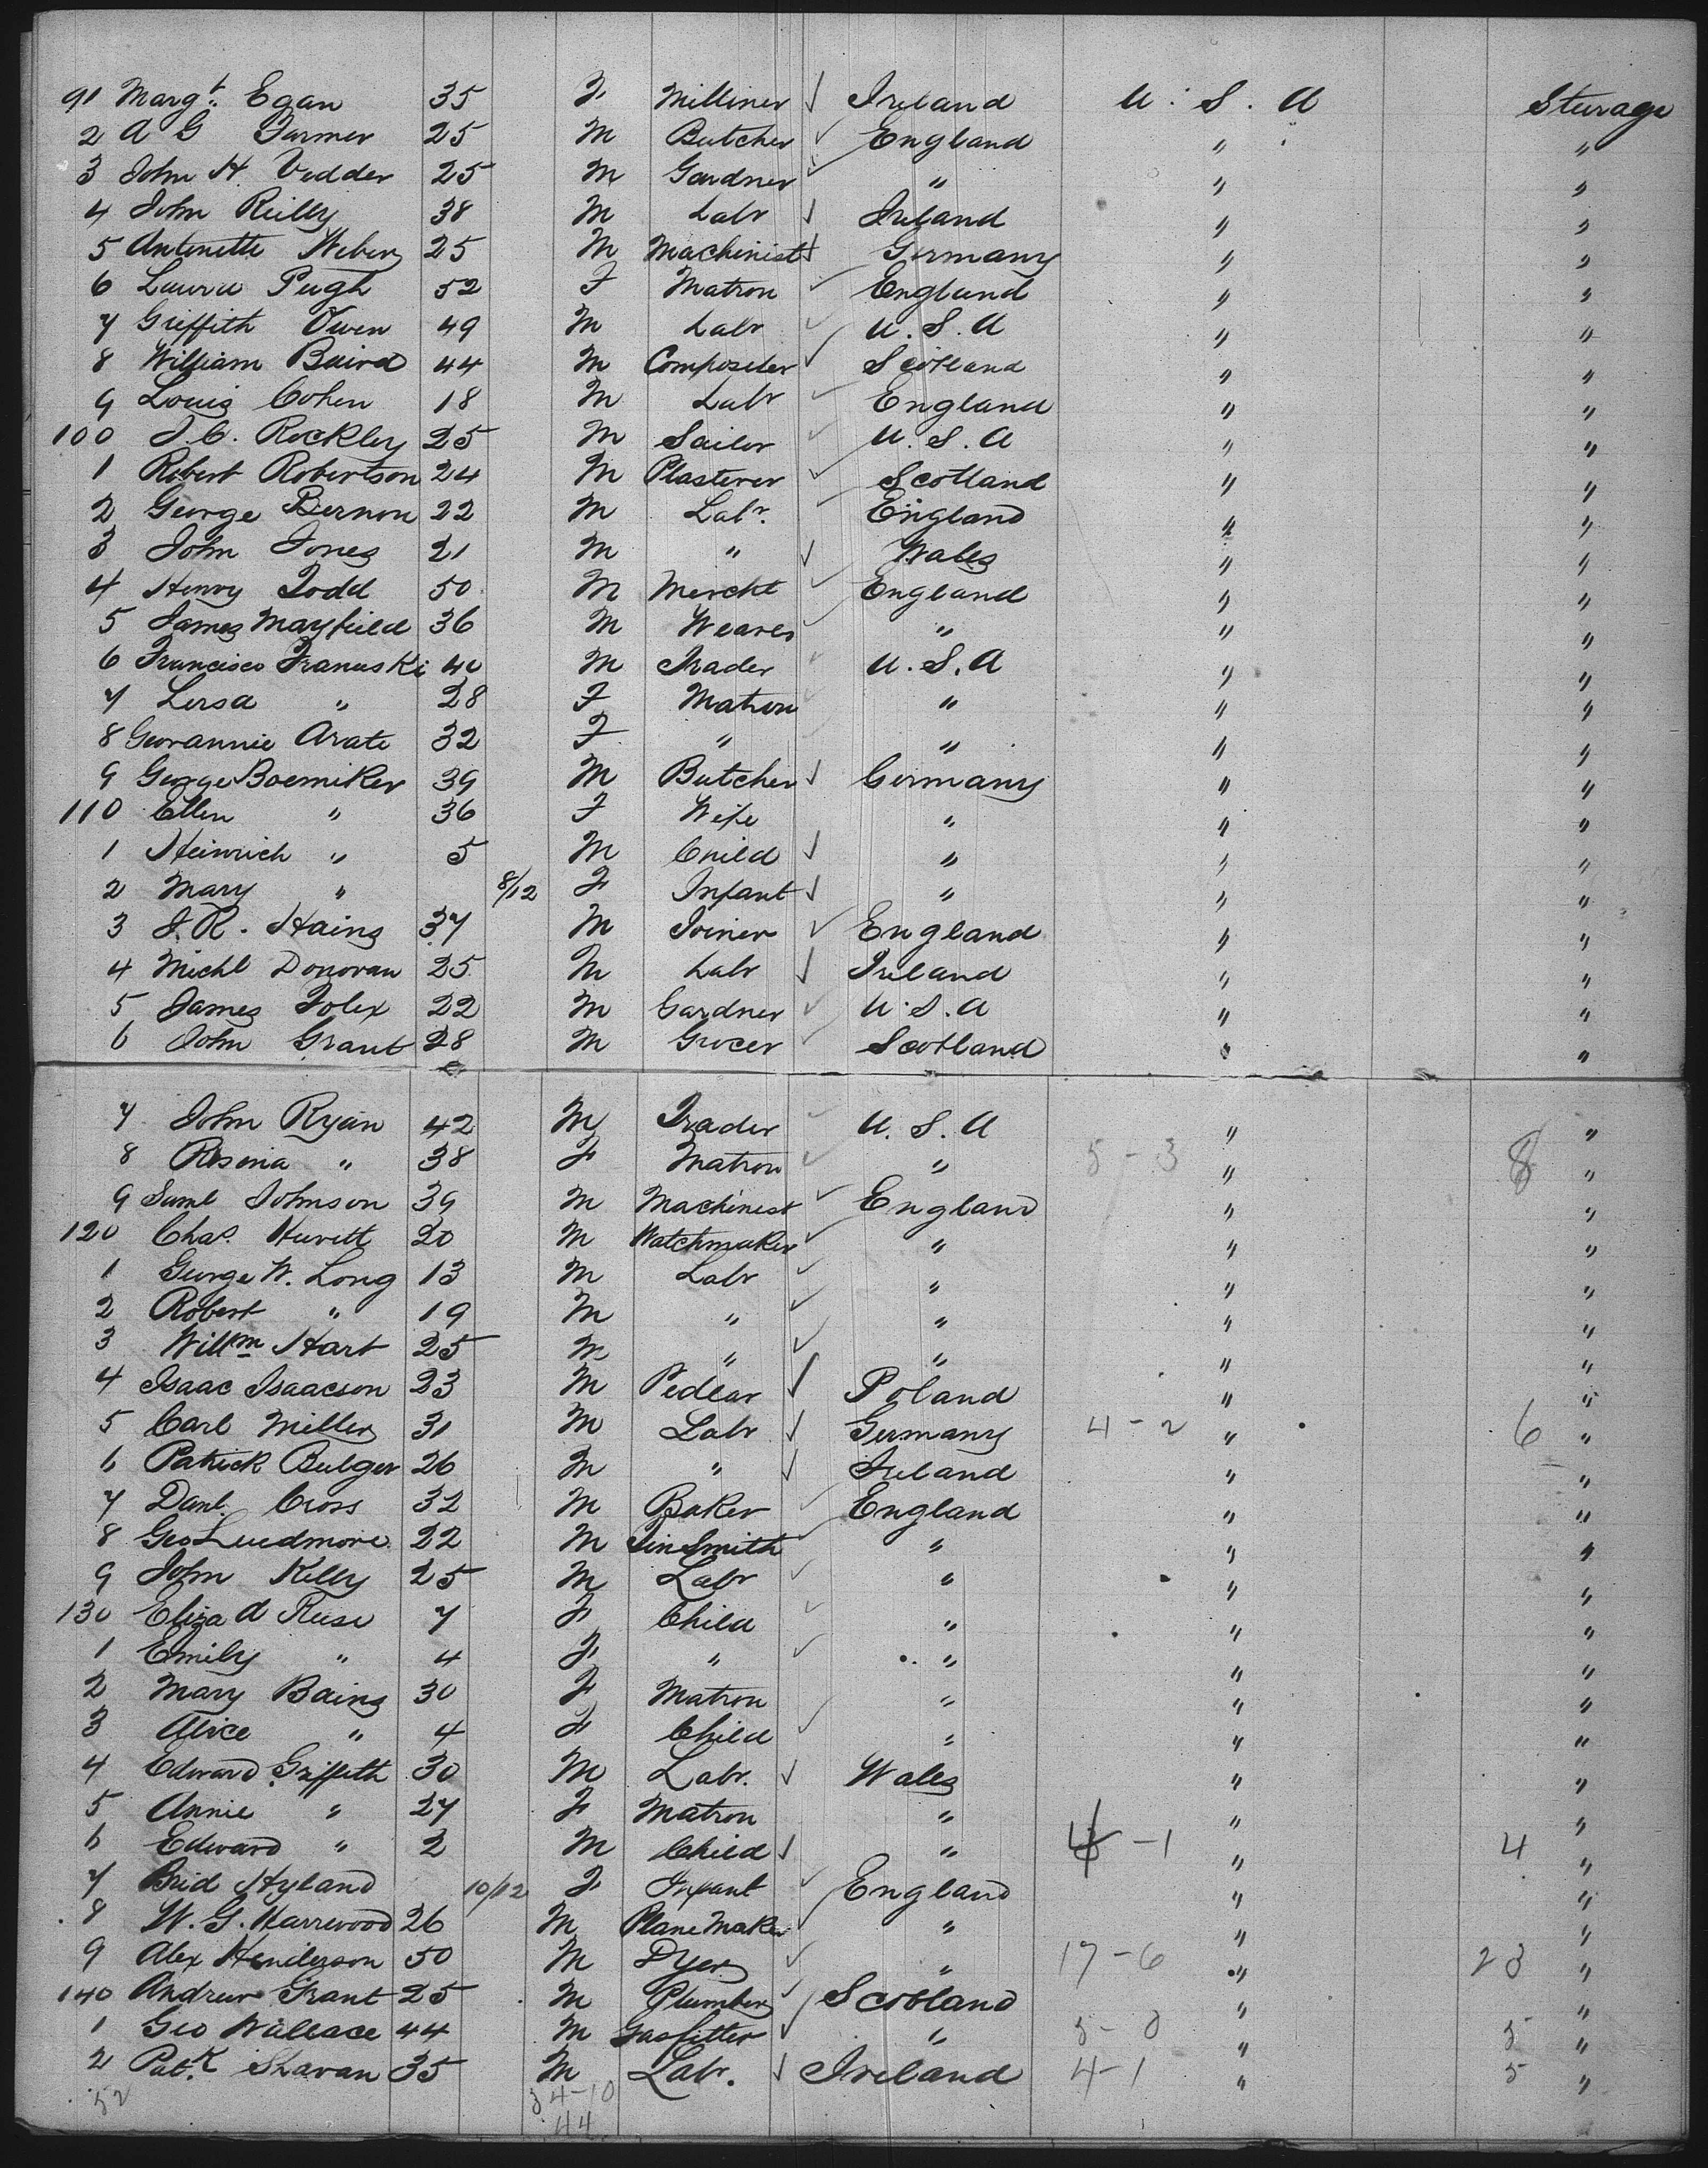 91 Margt. Egan 35 F Milliner Ireland U. S. A Sturage
2 A G Farmer 25 M Butcher England " "
3 John H. Vedder 25 M Gardner " " "
4 John Reilly 38 M Labr Ireland " "
5 Antonette Weber 25 M Machinist Germany " "
6 Laura Pugh 52 F Matron England " "
7 Griffith Owen 49 M Labr U.S.A " "
8 William Baird 44 M Scotland " "
9 Louis Cohen 18 M Labr England " "
100 J.C. Rockley 25 M Sailor U.S.A " "
1 Robert Robertson 24 M Plasterer Scotland " "
2 George Bernon 22 M Labr. England " "
3 John Jones 21 M " Wales " "
4 Henry Todd 50 M Mercht England " "
5 James Mayfield 36 M Weaver " " "
6 Francisco Franuski 40 M Trader U.S.A " "
7 Lersa " 28 F Matron " " "
8 Arate 32 F " " " "
9 George Boemiker 39 M Butcher Germany " "
110 Ellen " 36 F Wife " " "
1 Heinrich " 5 M Child " " "
2 Mary " 8/12 F Infant " " "
3 J.R. Hains 37 M Joiner England " "
4 Michl Donovan 25 M Labr Ireland " "
5 James Folex 22 M Gardner U.S.A " "
6 John Grant 28 M Grocer Scotland " "
7 John Ryan 42 M Trader U.S.A " "
8 Rosina " 38 F Matron " 5-3 " 8 "
9 Saml Johnson 39 M Machinest England " "
120 Chas. Huvitt 20 M Watchmaker " " "
1 George W. Long 13 M Labr " " "
2 Robert " 19 M " " " "
3 Willm Hart 25 M " " " "
4 Isaac Isaacson 23 M Pedlar Poland " "
5 Carl Miller 31 M Labr Germany 4-2 " 6 "
6 Patrick Bulger 26 M " Ireland " "
7 Danl. Cross 32 M Baker England " "
8 Geo Luedmore 22 M TinSmith " " "
9 John Kelly 25 M Labr " " "
130 Eliza A Reese 7 F Child " " "
1 Emily " 4 F " " " "
2 Mary Bains 30 F Matron " " "
3 Alice " 4 F Child " " "
4 Edward Griffith 30 M Labr. Wales " "
5 Annie " 27 F Matron " " "
6 Edward " 2 M Child " -1 " 4 "
7 Brid Hyland 10/12 F Infant England " "
8 W.G. Harrewood 26 M Plane Maker " " "
9 Alex Henderson 50 M Dyer " 17-6 " 23 "
140 Andrew Grant 25 M Plumber Scotland " "
1 Geo Wallace 44 M Gasfitter " 5-0 " 5 "
2 Patk. Slavan 35 M Labr. Ireland 4-1 " 5 "
52 34-10
44